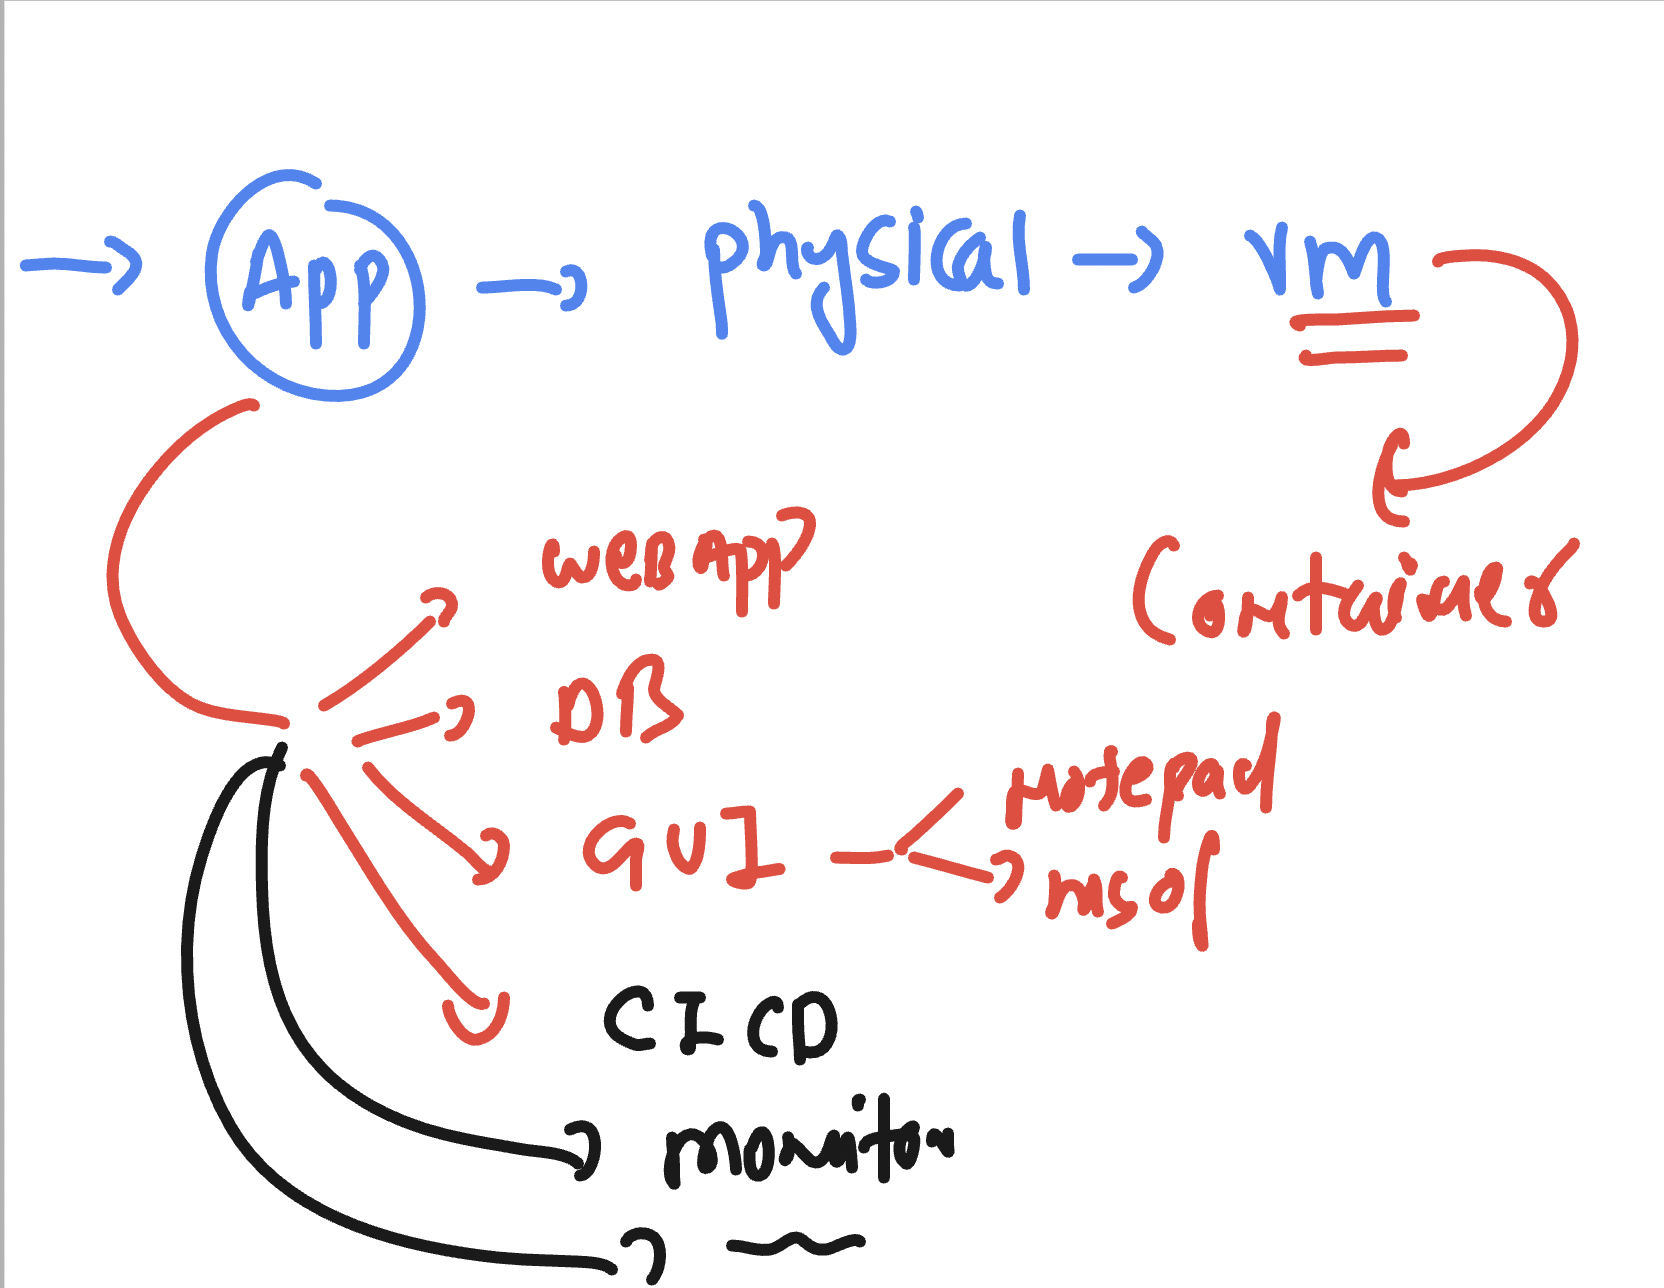 App physical vm
Container
WEB App
DB
GUI
Notepad
CI CD
monitor